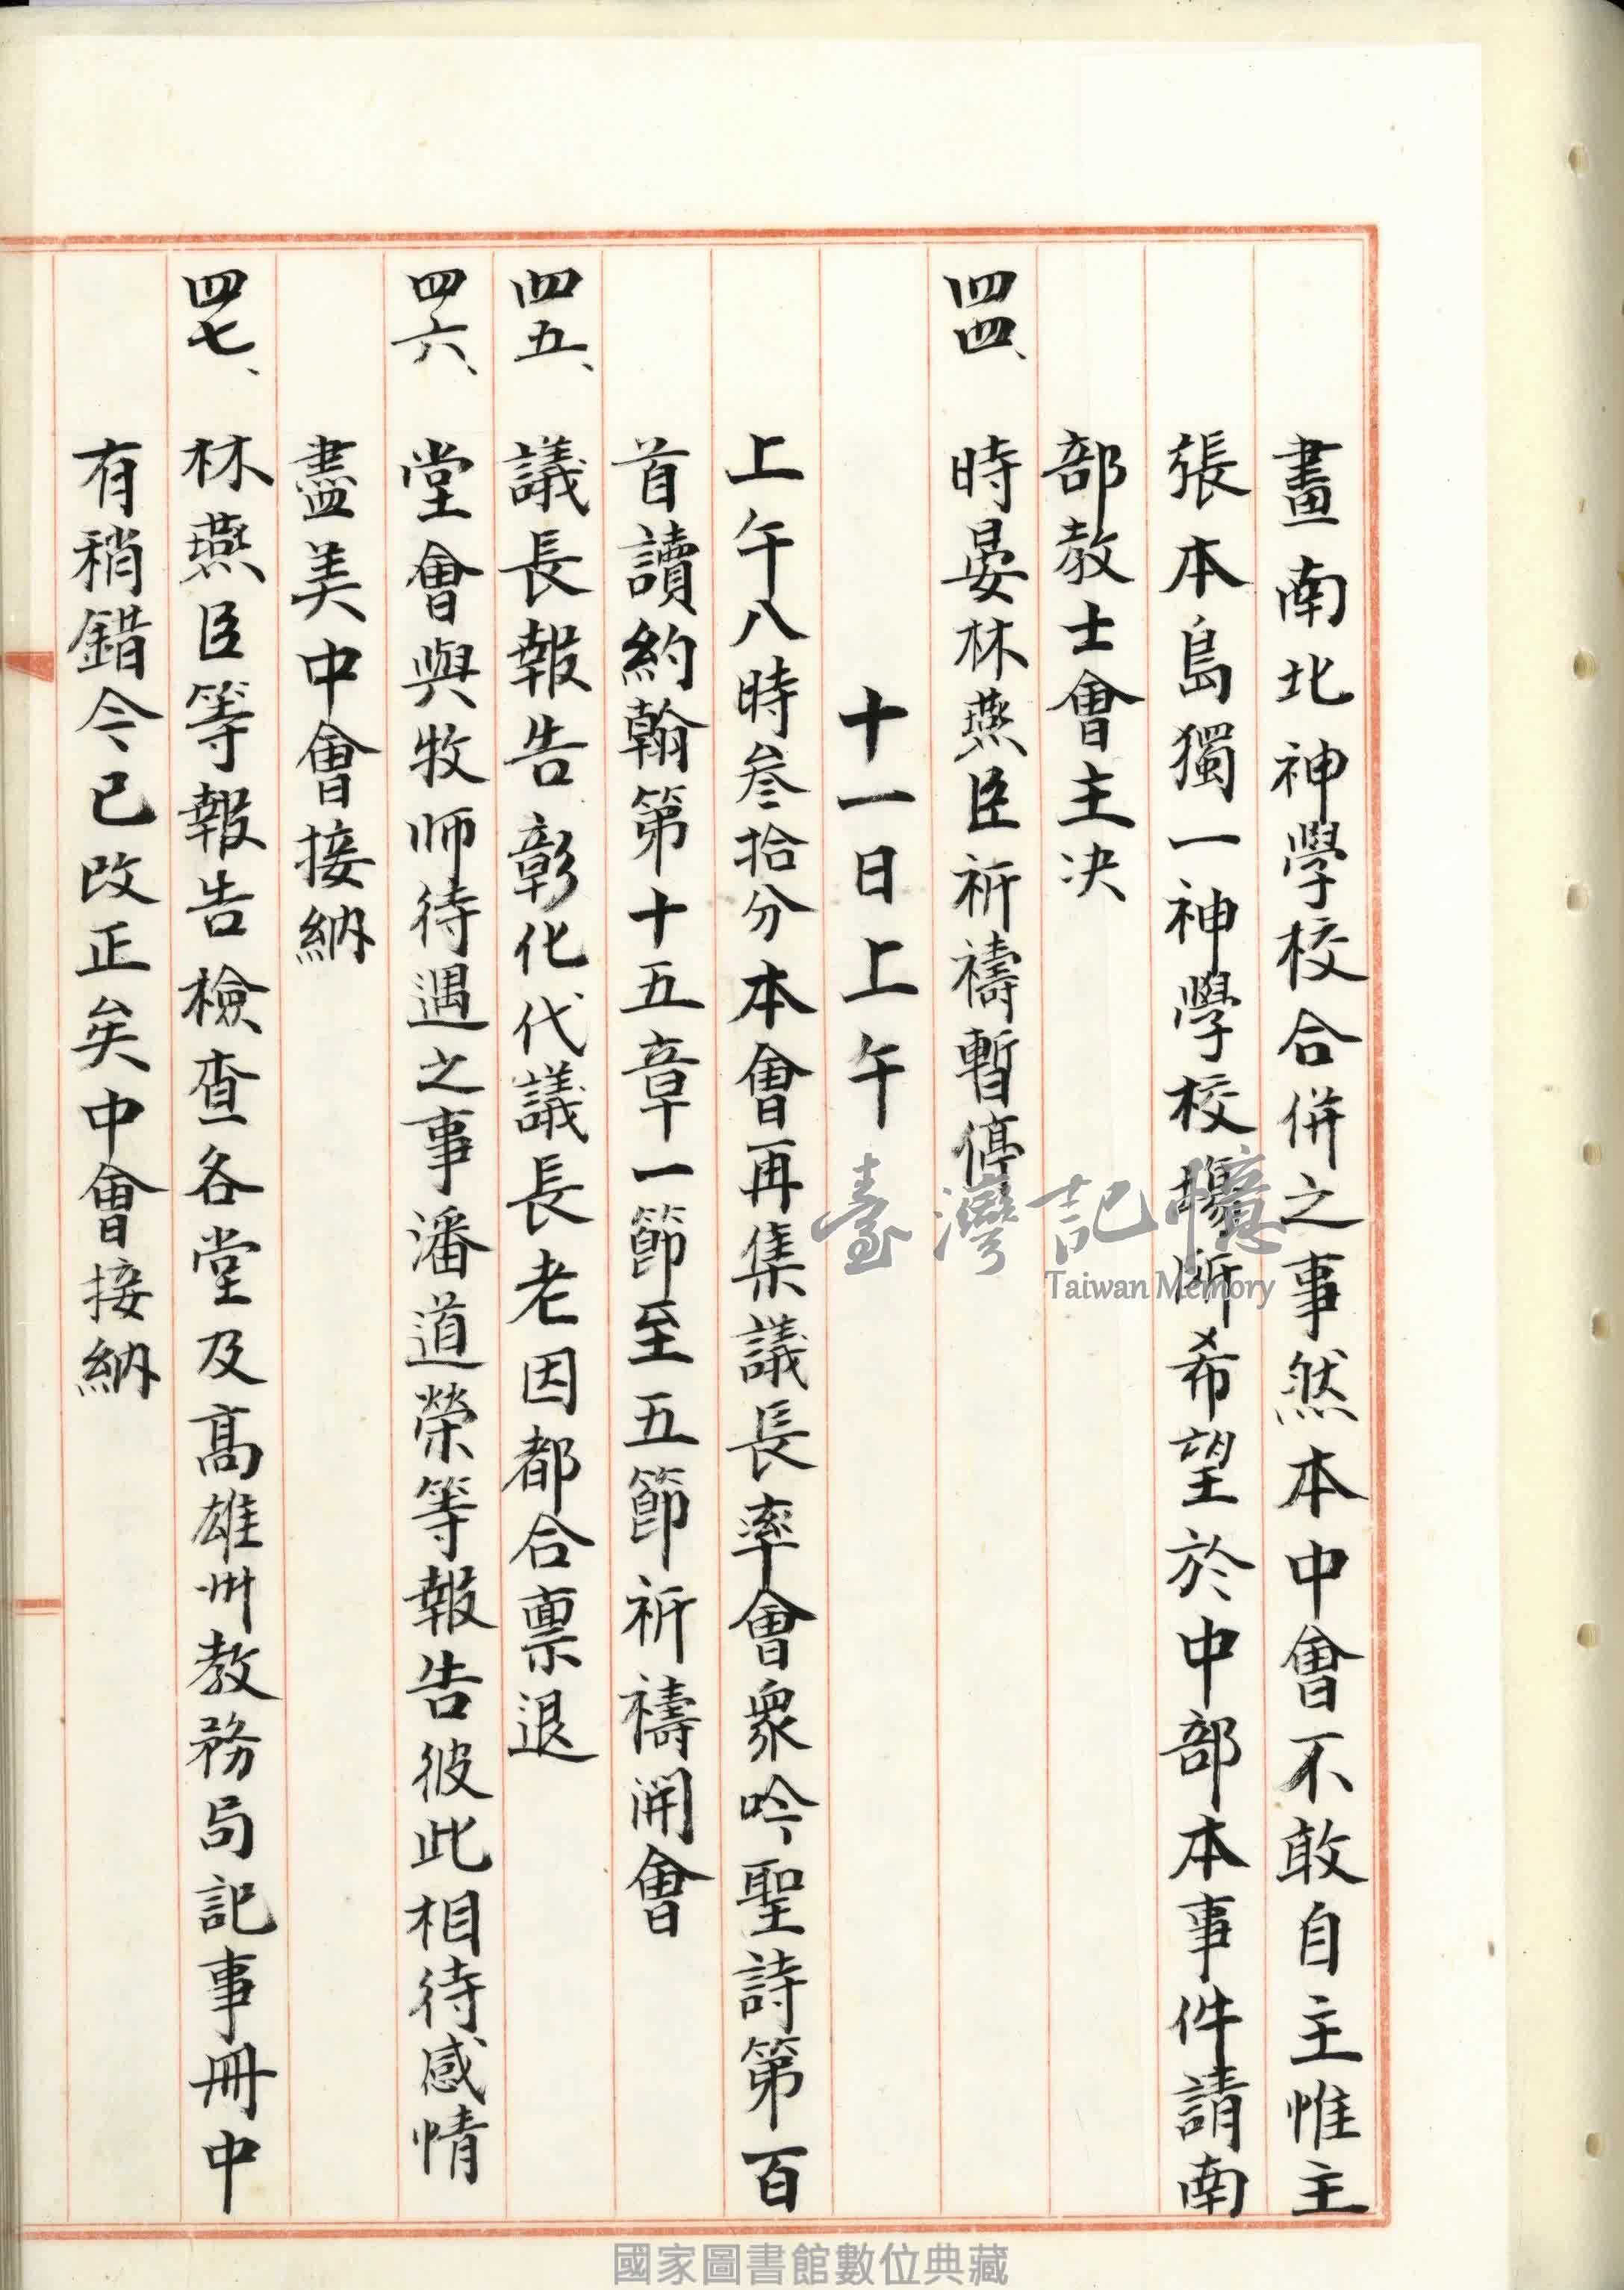 畫南北神學校合併之事然本中會不敢自主惟主
張本島獨一神學校場所希望於中部本事件請南
部教士會主决
四四、時晏林燕臣祈禱暫停
十一日上午
上午八時叁拾分本會再集議長率會衆吟聖詩第百
首讀約翰第十五章一節至五節祈禱開會
四五、議長報告彰化代議長老因都合禀退
四六、堂會與牧师待遇之事潘道榮等報告彼此相待感情
盡美中會接納
四七、林燕臣等報告檢查各堂及髙雄州教務局記事冊中
有稍錯今已改正矣中會接納
臺灣記憶
Taiwan Memory
國家圖書館數位典藏